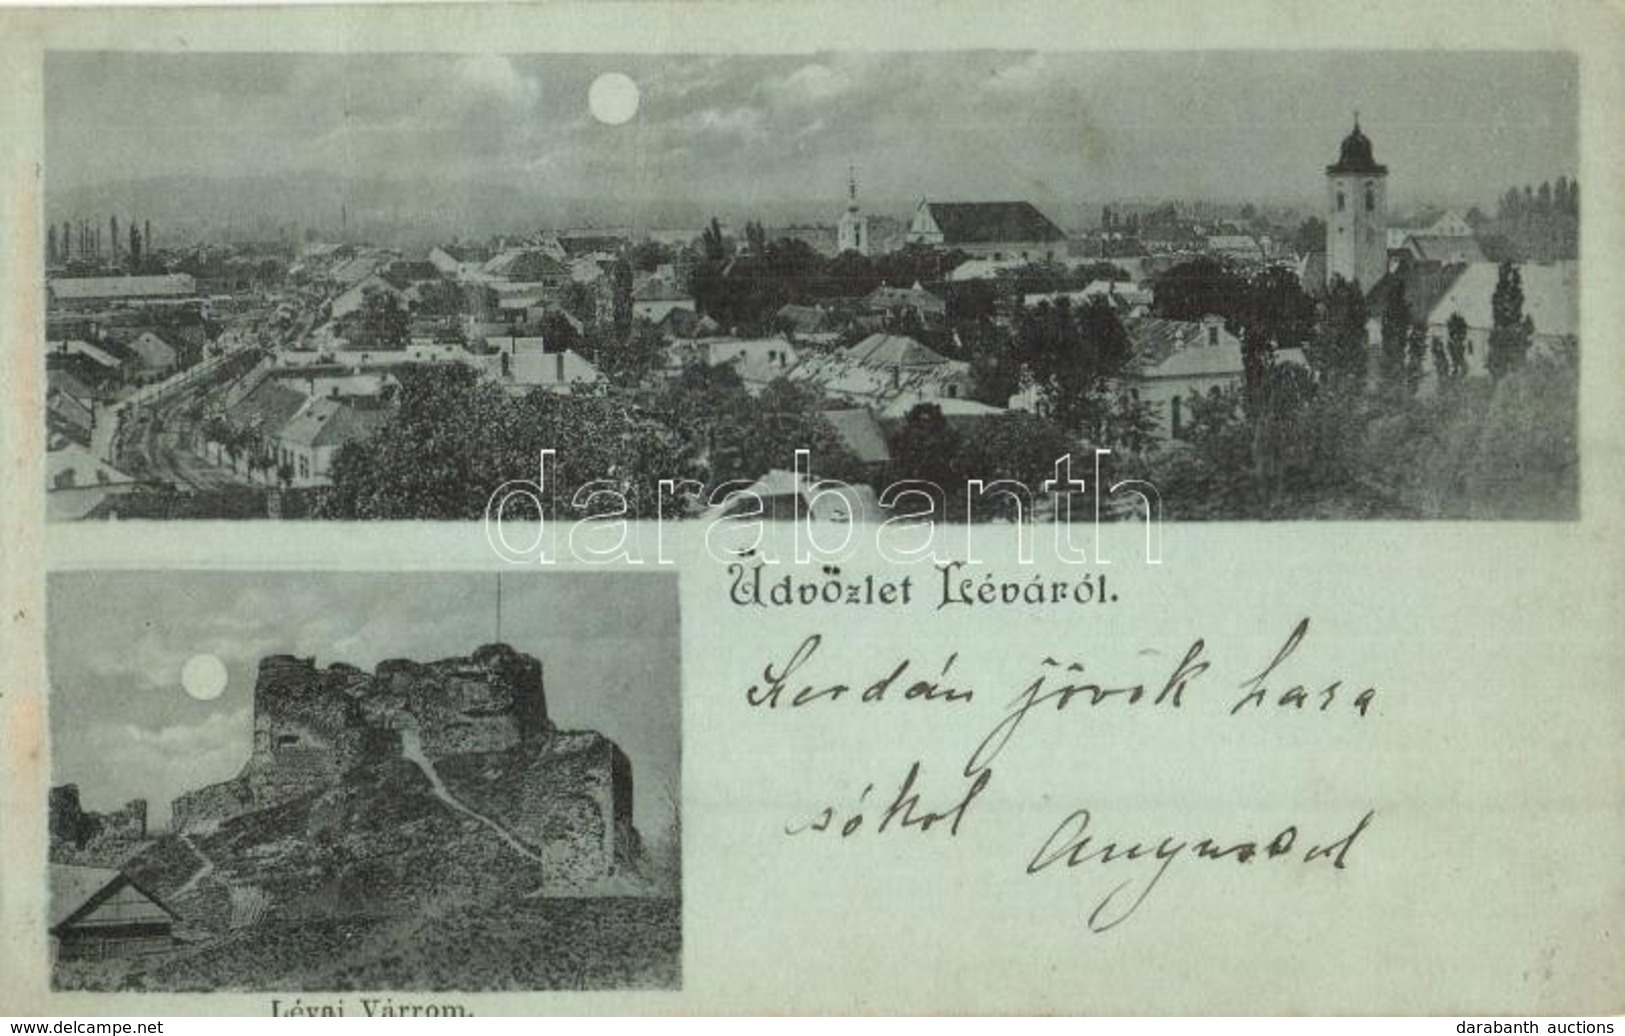 Üdvözlet Léváról.
Szerdán jövök haza
sókol Anyussal
Lévai Várrom.
darabanth
www.darabanth.com
darabanth auctions